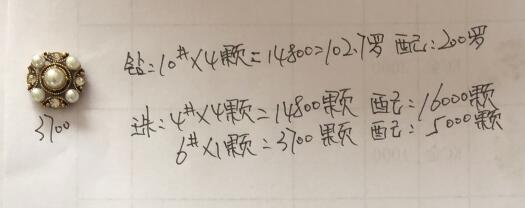 钻:10#×4颗=14800=102.7罗 配:200罗
珠:4#×4颗=14800颗 配:16000颗
6#×1颗=3700颗 配:5000颗
3700